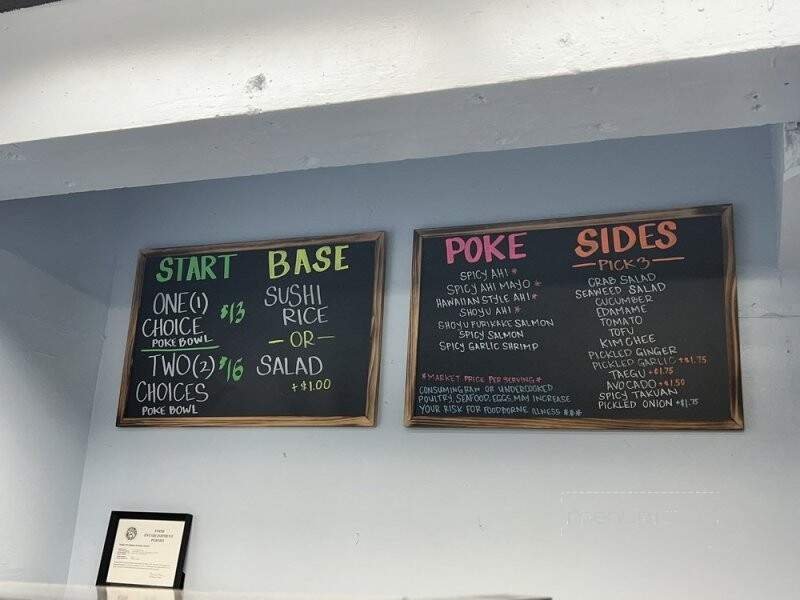 START
ONE(1) $13
CHOICE
POKE BOWL
TWO(2) $16
CHOICES
POKE BOWL
BASE
SUSHI
RICE
— OR —
SALAD
+$1.00
POKE
SPICY AHI *
SPICY AHI MAYO *
HAWAIIAN STYLE AHI *
SHOYU AHI *
SHOYU FURIKAKE SALMON
SPICY SALMON
SPICY GARLIC SHRIMP
*MARKET PRICE PER SERVING*
CONSUMING RAW OR UNDERCOOKED
POULTRY, SEAFOOD, EGGS, MAY INCREASE
YOUR RISK FOR FOODBORNE ILLNESS ***
SIDES
— PICK 3 —
CRAB SALAD
SEAWEED SALAD
CUCUMBER
EDAMAME
TOMATO
TOFU
KIM CHEE
PICKLED GINGER
PICKLED GARLIC +$1.75
TAEGU +$1.75
AVOCADO +$1.50
SPICY TAKUAN
PICKLED ONION +$1.75
FOOD
ESTABLISHMENT
PERMIT